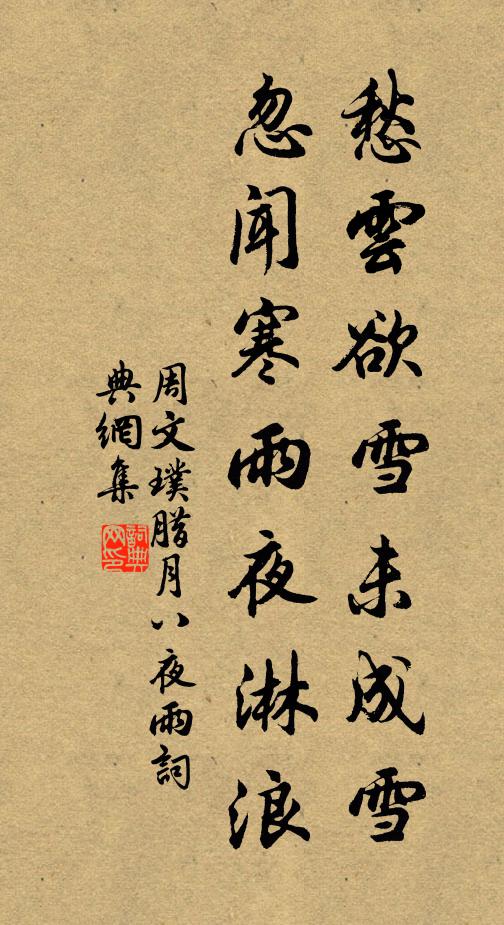 愁雲欲雪未成雪
忽聞寒雨夜淋浪
周文璞腊月八夜雨詞
典網集
詞典網印